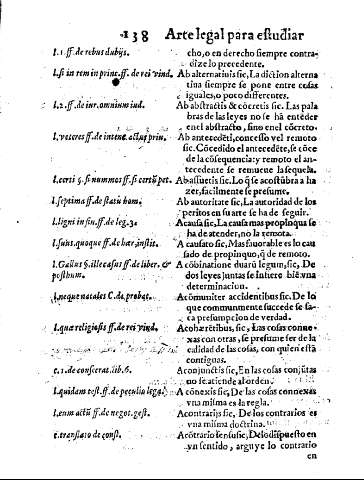 138 Arte legal para estudiar
l.1.ff.de rebus dubijs.
cho, o en derecho siempre contra-
dize lo precedente.
l.si in rem in princ.ff.de rei vind.
Ab alternatiuis sic, La diction alterna
tiua siempre se pone entre cosas
iguales, o poco differentes.
l.2.ff.de iur.omnium iud.
Ab abstractis & cōcretis sic. Las pala
bras de las leyes no se hā entēder
en el abstracto, sino en el cōcreto.
l.veteres ff.de itinere actuq; priu.
Ab antecedēti, concesso vel remoto
sic. Cōcedido el antecedēte, se cōce
de la cōsequencia: y remoto el an-
tecedente se remueue la sequela.
l.certi §.si nummos ff.si certū pet.
Ab assuetis sic. Lo q̄ se acostūbra a ha
zer, facilmente se presume.
l.septima ff.de statu hom.
Ab autoritate sic, La autoridad de los
peritos en su arte se ha de seguir.
l.ligni in fin.ff.de leg.3.
A causa sic, La causa mas propinqua se
ha de atender, no la remota.
l.suus quoque ff.de hær.instit.
A causato sic, Mas fauorable es lo cau
sado de propinquo, q̄ de remoto.
l.Gallus §.ille casus ff.de liber. &
posthum.
A cōbinatione duarū legum, sic, De
dos leyes juntas se infiere biē vna
determinacion.
l.neque natales C.de probat.
A cōmuniter accidentibus sic. De lo
que communmente succede se sa-
ca presumpcion de verdad.
l.quæ religiosis ff.de rei vind.
A cohærētibus, sic, Las cosas conne-
xas con otras, se presume ser de la
calidad de las cosas, con quien estā
contiguas.
c.1.de consecrat.lib.6.
A conjunctis sic, En las cosas conjūtas
no se atiende al orden.
l.quidam test.ff.de peculio lega.
A cōnexis sic, De las cosas connexas
vna misma es la regla.
l.eum actū ff.de negot.gest.
A contrarijs sic, De los contrarios es
vna misma doctrina.
c.translato de const.
A cōtrario sensu sic, De lo dispuesto en
vn sentido, arguye lo contrario
en